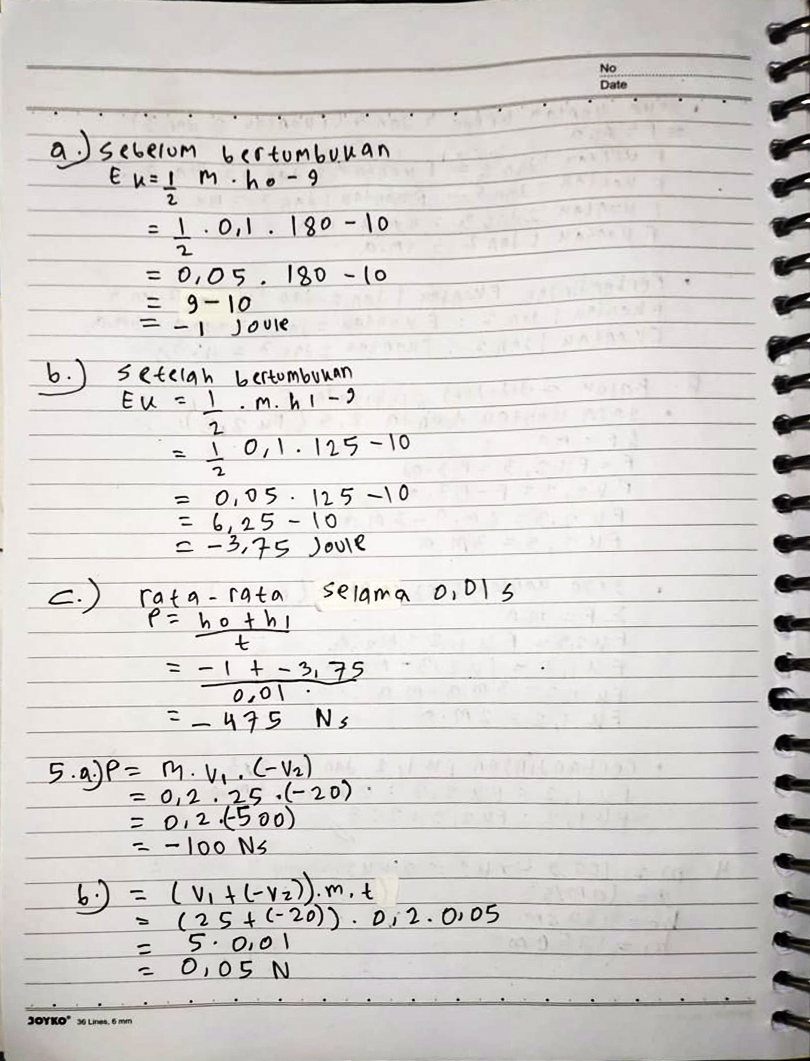 No
Date
a.) Sebelum bertumbukan
Eu = 1/2 m . ho - g
= 1/2 . 0,1 . 180 - 10
= 0,05 . 180 - 10
= 9 - 10
= - 1 Joule
b.) Setelah bertumbukan
Eu = 1/2 . m. h1 - g
= 1/2 0,1 . 125 - 10
= 0,05 . 125 - 10
= 6,25 - 10
= -3,75 Joule
c.) rata - rata selama 0,01 s
P = ho + h1 / t
= -1 + -3,75 / 0,01 .
= - 475 Ns
5.a.) P = m. v1 . (-v2)
= 0,2 . 25 . (-20)
= 0,2 . (-500)
= -100 Ns
b.) = (v1 + (-v2)). m. t
= (25 + (-20)) . 0,2 . 0,05
= 5 . 0,01
= 0,05 N
JOYKO® 36 Lines, 6 mm